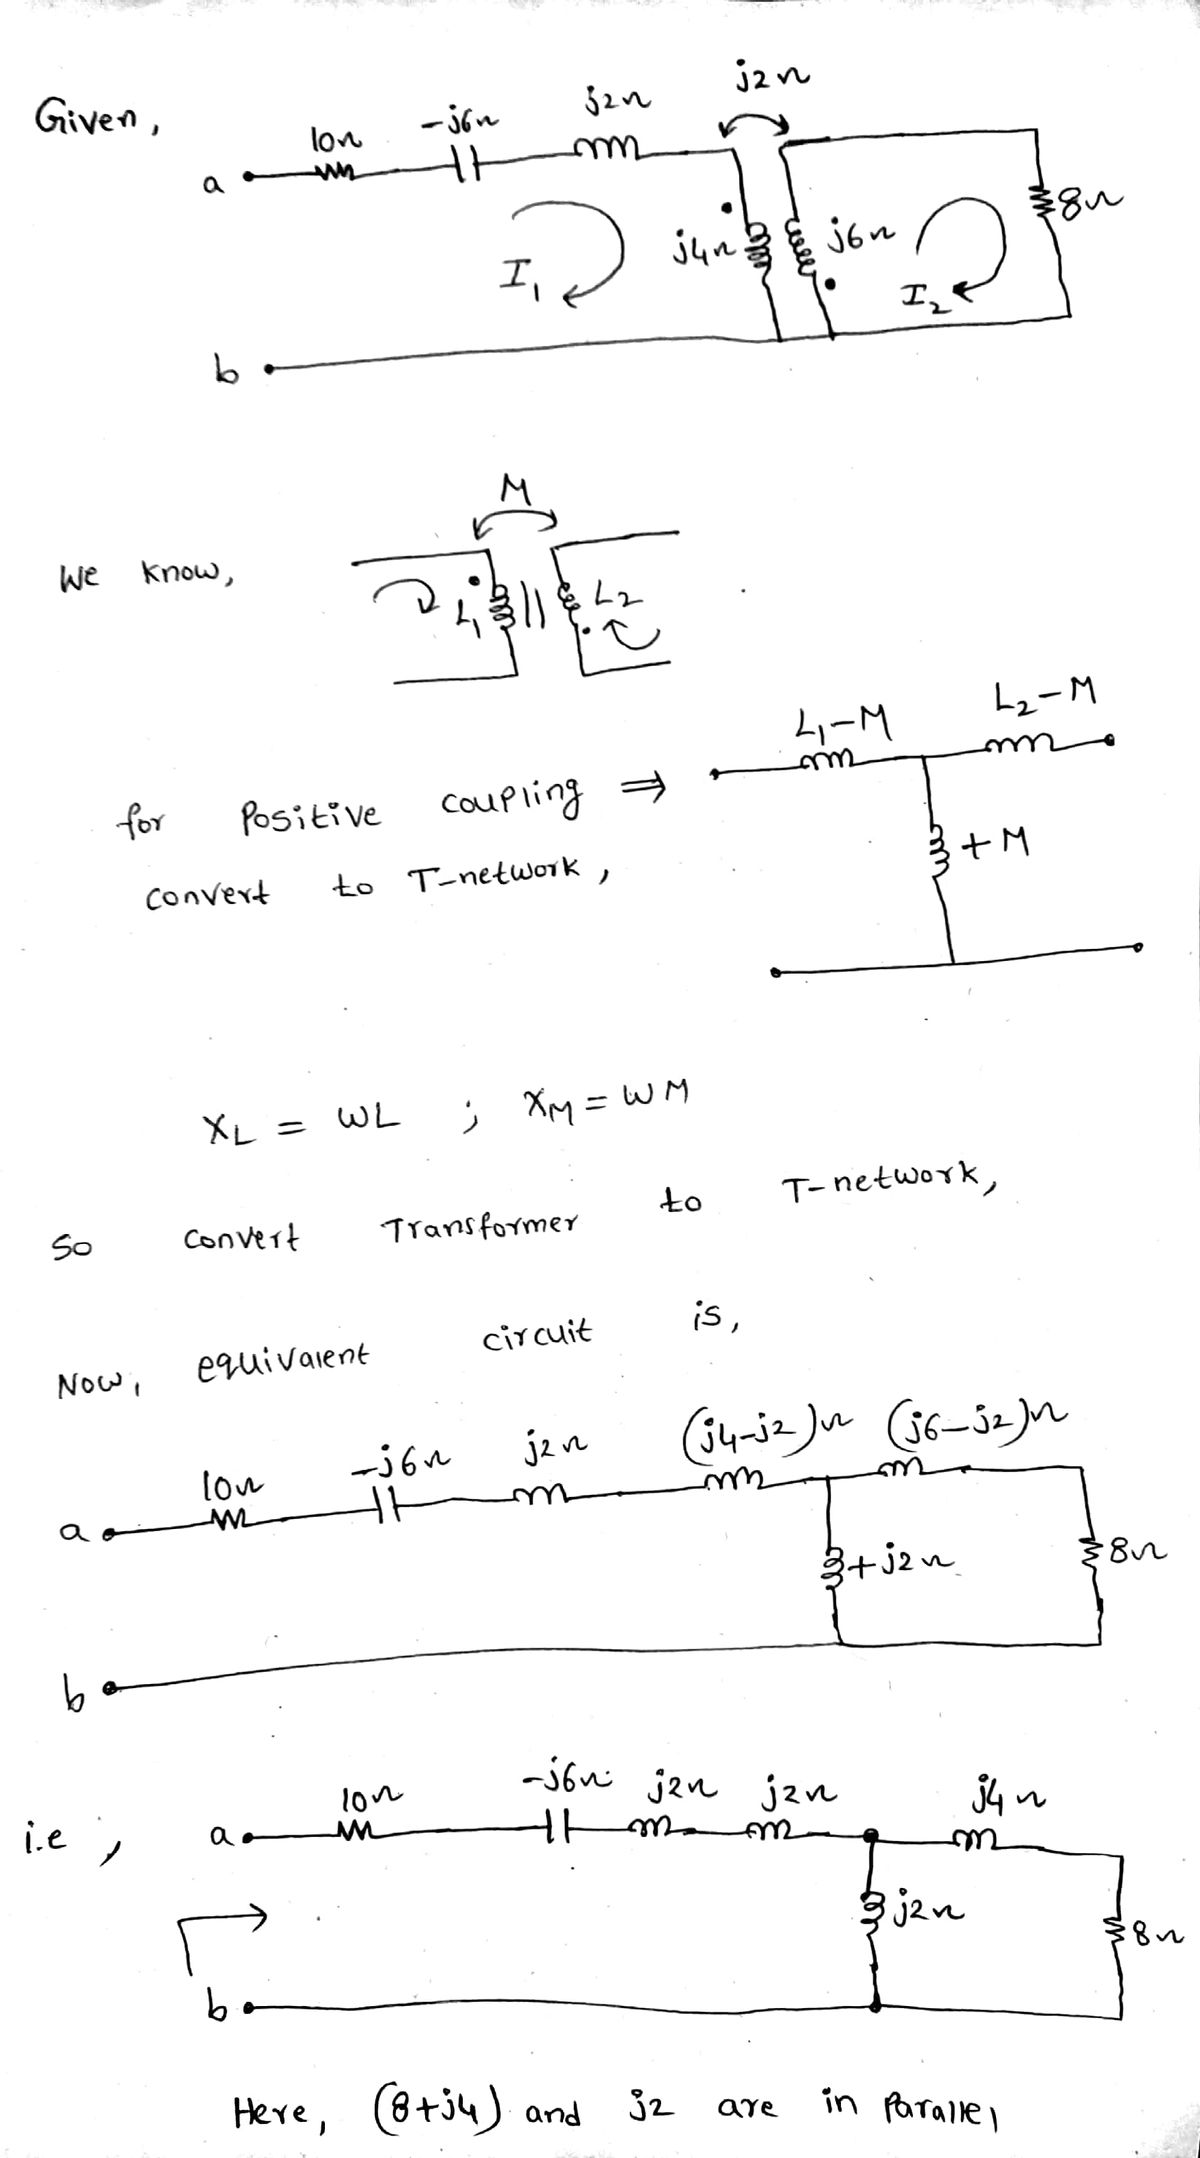 Given,
10Ω -j6Ω j2Ω j2Ω
a
I1 j4Ω j6Ω I2 8Ω
b
M
We know,
L1 L2
L1-M L2-M
for Positive coupling ⇒
+M
convert to T-network,
XL = WL ; XM = WM
So convert Transformer to T-network,
Now, equivalent circuit is,
10Ω -j6Ω j2Ω (j4-j2)Ω (j6-j2)Ω
a
+j2Ω 8Ω
b
i.e, a 10Ω -j6Ω j2Ω j2Ω j4Ω
j2Ω 8Ω
b
Here, (8+j4) and j2 are in Parallel